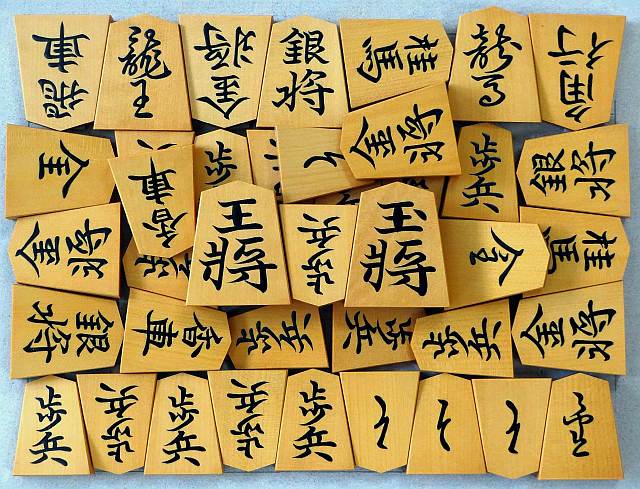 香車 龍王 金将 銀将 桂馬 龍馬 角行
香車 歩兵 と 金将 歩兵 銀将
金将 歩兵 王將 歩兵 玉將 桂馬
銀将 香車 歩兵 歩兵 歩兵 金将
歩兵 歩兵 歩兵 歩兵 歩兵 と と と